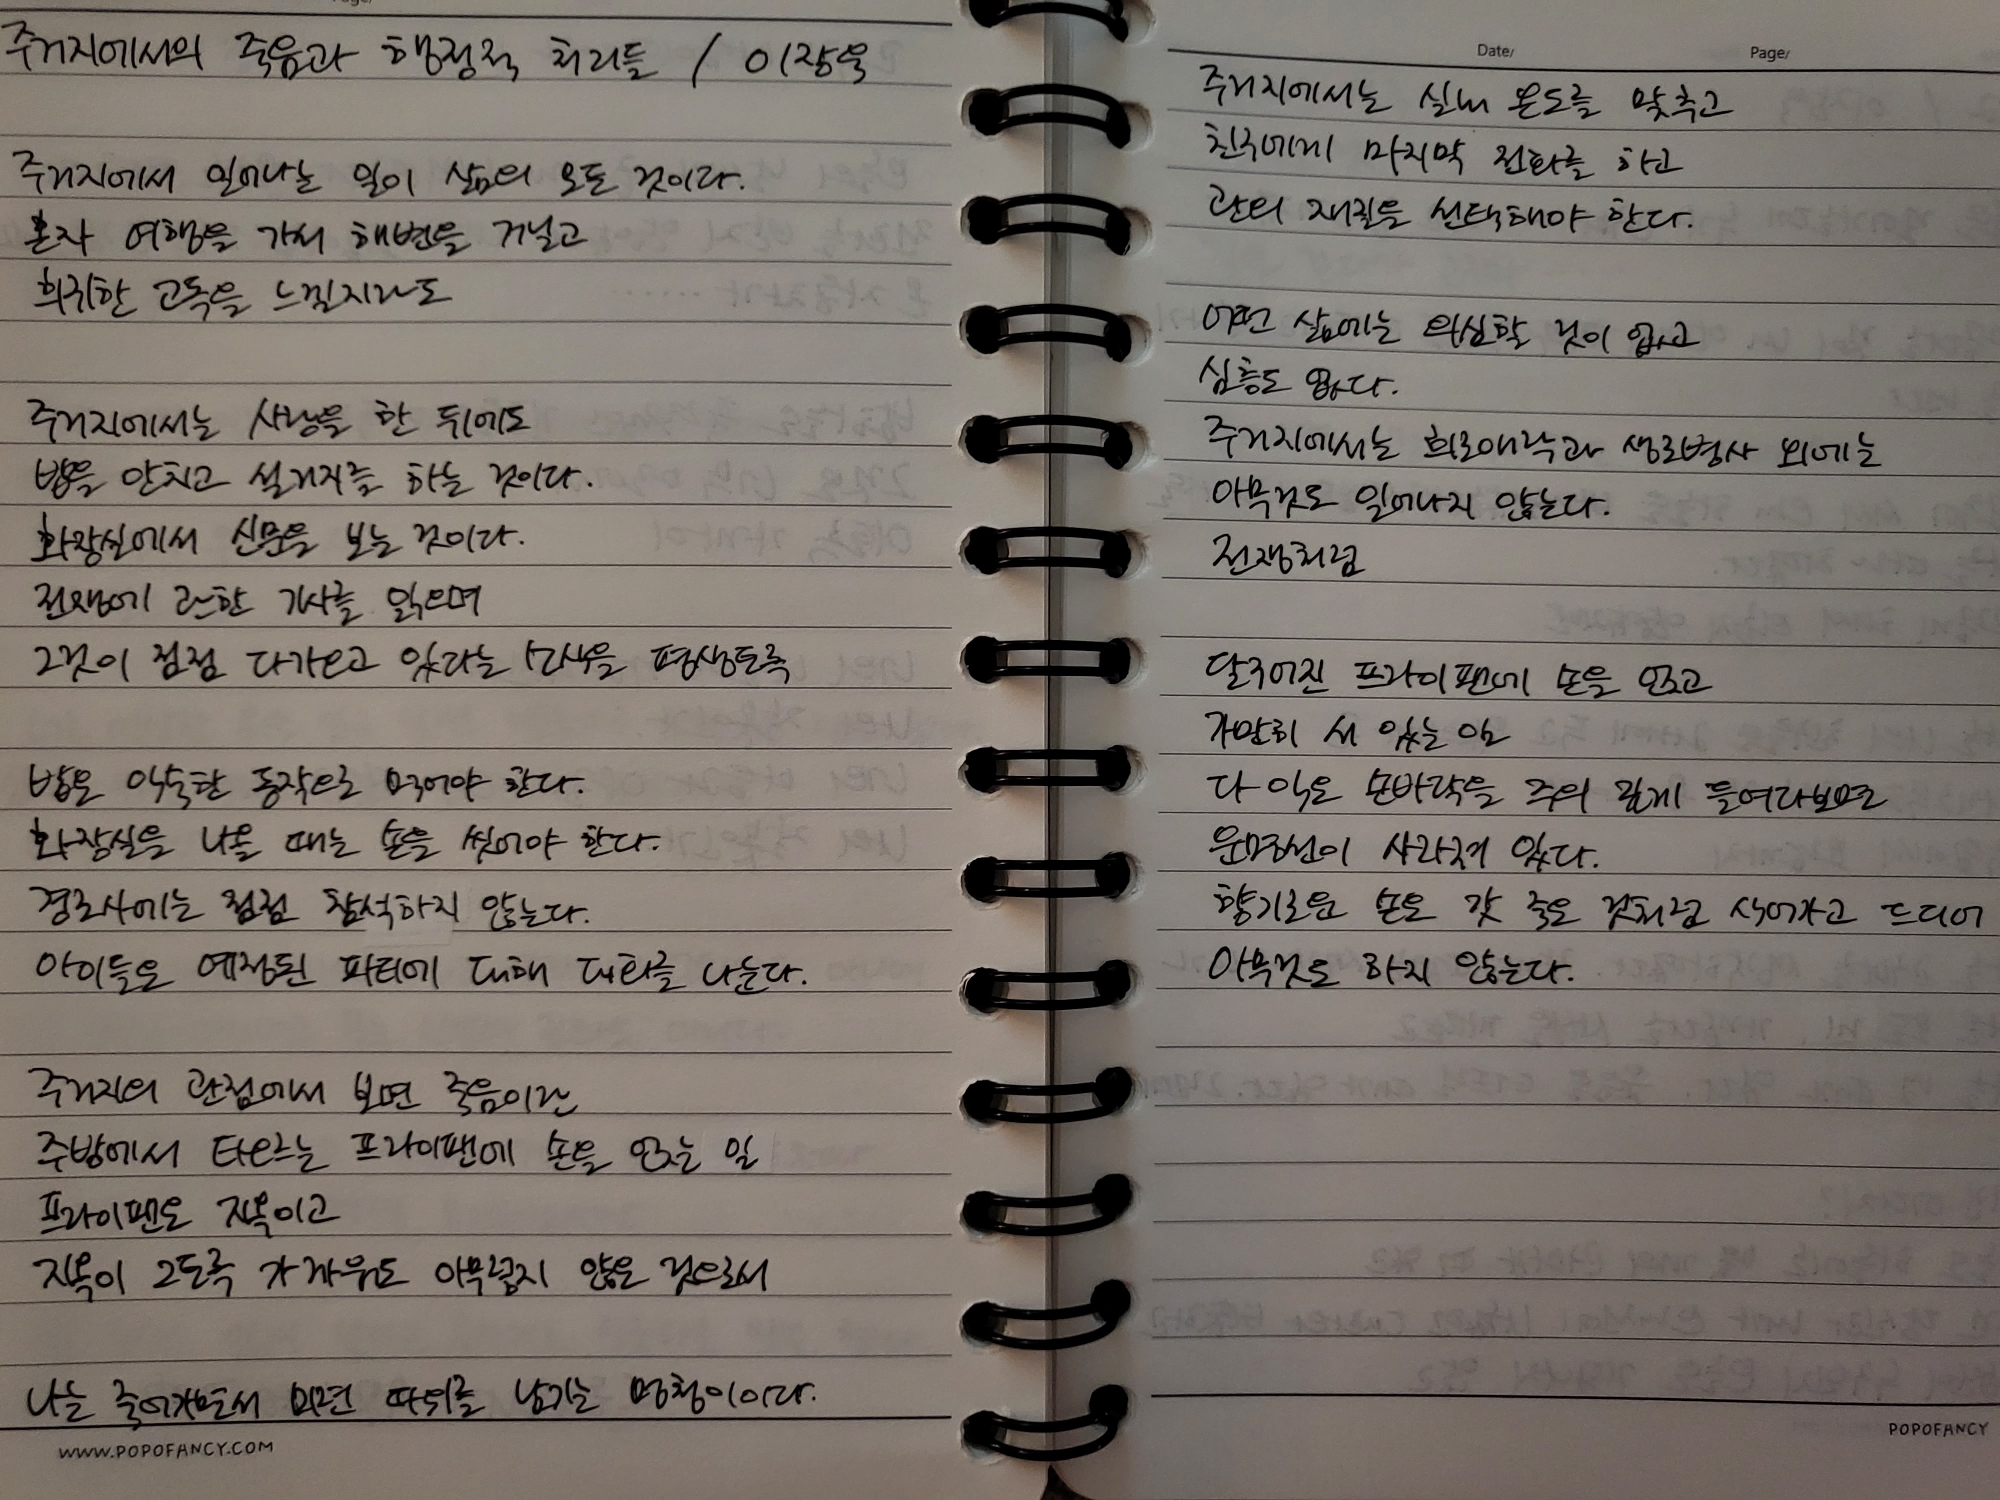 주거지에서의 죽음과 행정적 처리들 / 이장욱
주거지에서 일어나는 일이 삶의 모든 것이다.
혼자 여행을 가서 해변을 거닐고
희귀한 고독을 느낄지라도
주거지에서는 사랑을 한 뒤에도
밥을 안치고 설거지를 하는 것이다.
화장실에서 신문을 보는 것이다.
전쟁에 관한 기사를 읽으며
그것이 점점 다가오고 있다는 망상을 평생토록
밥은 익숙한 동작으로 먹어야 한다.
화장실을 나올 때는 손을 씻어야 한다.
경조사에는 점점 참석하지 않는다.
아이들은 예정된 파티에 대해 대화를 나눈다.
주거지의 관점에서 보면 죽음이란
주방에서 타오르는 프라이팬에 손을 얹는 일
프라이팬은 지옥이고
지옥이 그토록 가까워도 아무렇지 않은 것으로서
나는 죽어가면서 미련 따위를 남기는 멍청이이다.
Date/ Page/
주거지에서는 실내 온도를 맞추고
친구에게 마지막 전화를 하고
관의 재질을 선택해야 한다.
어떤 삶에는 의심할 것이 없고
심층도 없다.
주거지에서는 희로애락과 생로병사 외에는
아무것도 일어나지 않는다.
전쟁처럼
달구어진 프라이팬에 손을 얹고
가만히 서 있는 일
다 익은 손바닥을 주의 깊게 들여다보면
운명선이 사라져 있다.
향기로운 손은 갓 죽은 것처럼 식어가고 드디어
아무것도 하지 않는다.
WWW.POPOFANCY.COM
POPOFANCY